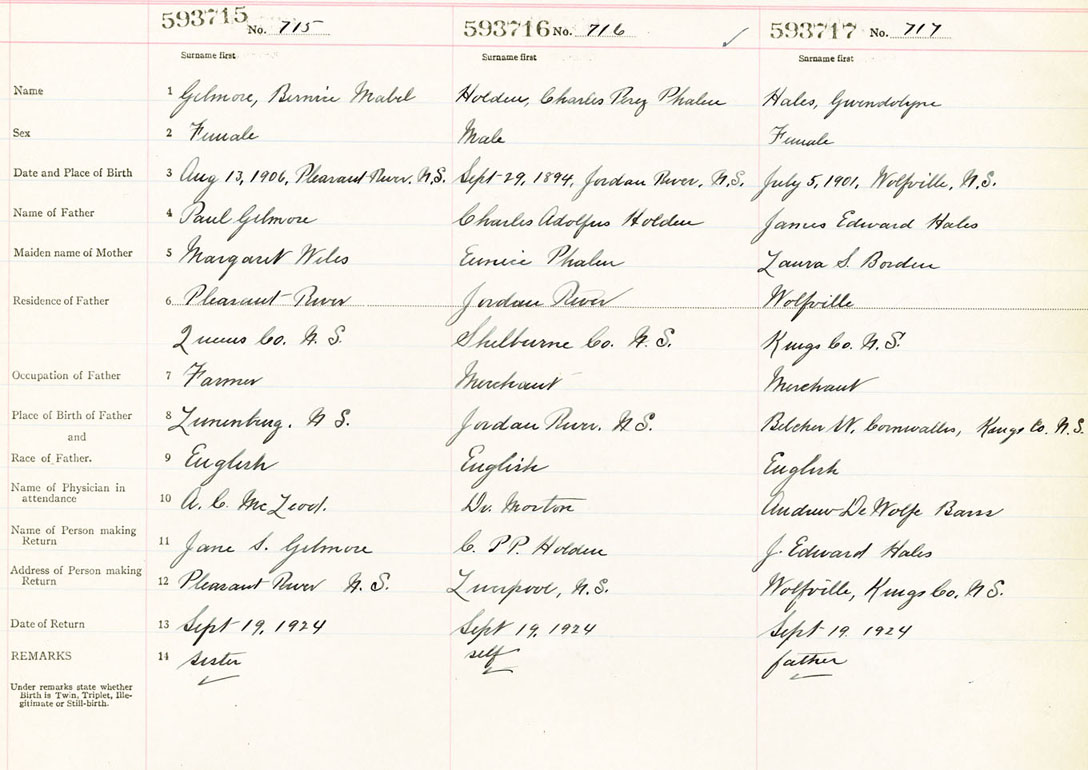 593715 No. 715 593716 No. 716 593717 No. 717
Surname first Surname first Surname first
Name 1 Gilmore, Bernice Mabel Holden, Charles Perez Phalen Hales, Gwendolyne
Sex 2 Female Male Female
Date and Place of Birth 3 Aug 13, 1906, Pleasant River, N.S. Sept 29, 1894, Jordan River, N.S. July 5, 1901, Wolfville, N.S.
Name of Father 4 Paul Gilmore Charles Adolfus Holden James Edward Hales
Maiden name of Mother 5 Margaret Wiles Eunice Phalen Laura S. Borden
Residence of Father 6 Pleasant River Jordan River Wolfville
Queens Co. N.S. Shelburne Co. N.S. Kings Co. N.S.
Occupation of Father 7 Farmer Merchant Merchant
Place of Birth of Father 8 Lunenburg, N.S. Jordan River, N.S. Belcher W. Cornwallis, Kings Co. N.S.
and
Race of Father. 9 English English English
Name of Physician in
attendance 10 A. C. McLeod. Dr. Morton Andrew De Wolfe Barss
Name of Person making
Return 11 Jane S. Gilmore C. P.P. Holden J. Edward Hales
Address of Person making
Return 12 Pleasant River N.S. Liverpool, N.S. Wolfville, Kings Co. N.S.
Date of Return 13 Sept 19, 1924 Sept 19, 1924 Sept 19 1924
REMARKS 14 sister self father
Under remarks state whether
Birth is Twin, Triplet, Ille-
gitimate or Still-birth.